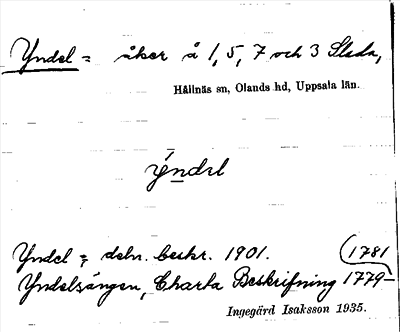 Yndel = åker å 1, 5, 7 och 3 Sleda,
Hållnäs sn, Olands hd, Uppsala län.
ýndel
Yndel = deln. beskr. 1901.
(1781
Yndelsängen, Charta Beskrifning 1779–
Ingegärd Isaksson 1935.